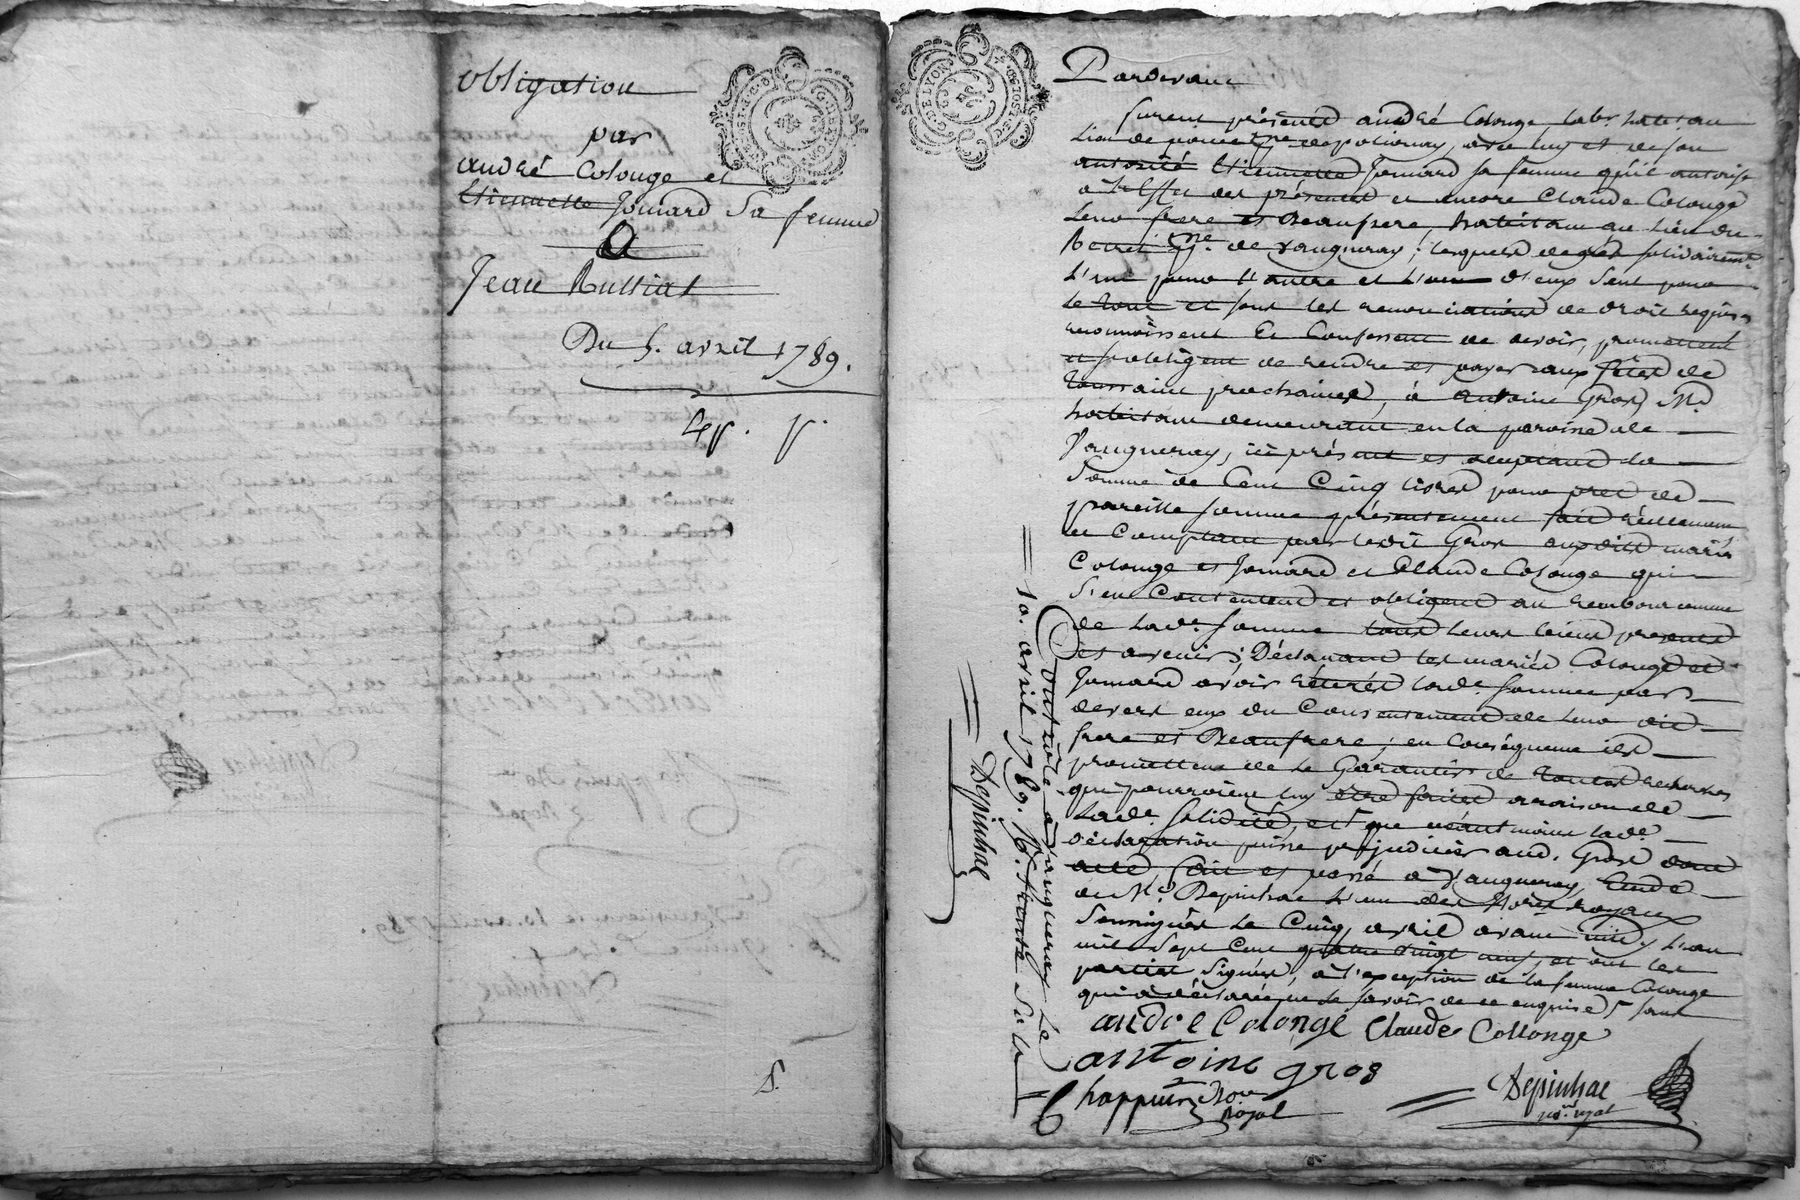 obligation
par
andré Colonge et
Etiennette Jomard Sa femme
A
Jean Bussiat
Du 5. avril 1789.
G. DE LYON
G. DE LYON
Pardevant
furent présents andré Colonge, labr. habt. au
Lieu de parise de polionay, avec luy et de son
autorité Etiennette Jomard sa femme qu'il autorise
a l'effet des présentes et encore Claude Colonge
leur frere et Beaufrere, habitant au Lieu du
psse. de vaugneray; lesquels de gré solidairemt.
L'un pour l'autre et L'un d'eux seul pour
le tout et sous les renonciations de droit requises
reconnoissent Et Confessent de devoir, promettent
et s'obligent de rendre et payer aux fêtes de
toussaint prochaines, à antoine Gros, Md.
habitant demeurant en la paroisse de
Vaugneray, ici présent et acceptant la
Somme de Cent Cinq livres pour pret de
pareille somme présentement fait réellement
et Comptant par ledit Gros auxdits mariés
Colonge et Jomard et Claude Colonge qui
S'en Contentent et obligent au remboursement
de lade. somme tous leurs biens présents
et avenir; Déclarant les mariés Colonge et
Jomard avoir retirés lade. somme par
devers eux du Consentement de leur dit
frere et Beaufrere; en Conséquence ils
promettent de le Garantir de toutes recherches
qui pourroient luy être faites araison de
lade. solidité, et que néantmoins lade.
déclaration puisse prejudicier aud. Gros dont
acte, fait et passé a Vaugneray, Etude
de Me. Depinhac L'un des Nores. royaux
Soussignés Le Cinq avril avant midy L'an
mil Sept Cent quatre vingt neuf, et ont les
parties Signés, à l'exception de la femme Colonge
qui a déclaré ne le savoir de ce enquise
andre Colonge Claude Collonge
antoine gros
Chappuis Nore
Royal
Depinhac
nore. royal
Controlé a vaugneray le
10. avril 1789.
Depinhac